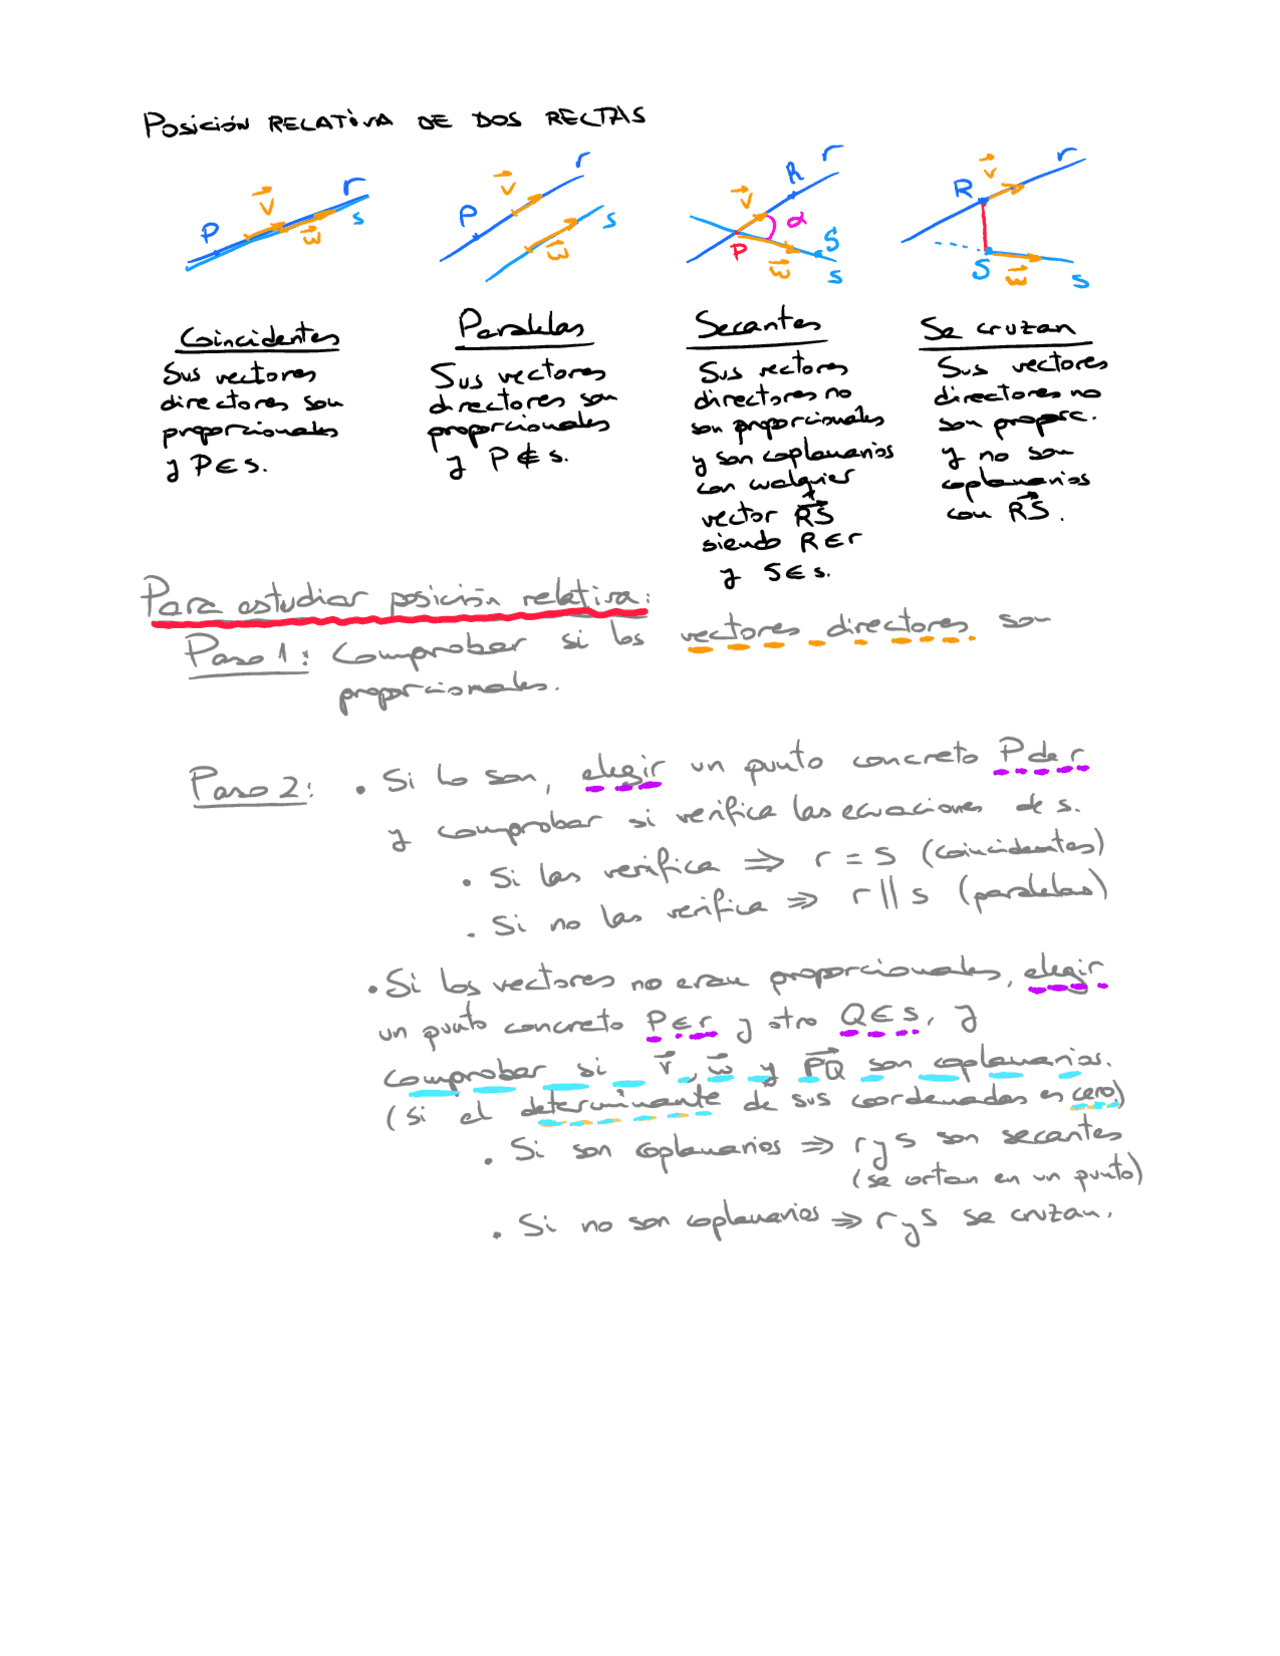 POSICIÓN RELATIVA DE DOS RECTAS
P v w r s
P v w r s
R r v α P w S s
R v r S w s
Coincidentes
Sus vectores
directores son
proporcionales
y P∈s.
Paralelas
Sus vectores
directores son
proporcionales
y P∉s.
Secantes
Sus vectores
directores no
son proporcionales
y son coplanarios
con cualquier
vector RS
siendo R∈r
y S∈s.
Se cruzan
Sus vectores
directores no
son proporc.
y no son
coplanarios
con RS.
Para estudiar posición relativa:
Paso 1: Comprobar si los vectores directores son
proporcionales.
Paso 2: • Si lo son, elegir un punto concreto P de r
y comprobar si verifica las ecuaciones de s.
• Si las verifica ⇒ r = s (coincidentes)
• Si no las verifica ⇒ r || s (paralelas)
• Si los vectores no eran proporcionales, elegir
un punto concreto P∈r y otro Q∈s, y
comprobar si v, w y PQ son coplanarios.
(si el determinante de sus coordenadas es cero)
• Si son coplanarios ⇒ r y s son secantes
(se cortan en un punto)
• Si no son coplanarios ⇒ r y s se cruzan.